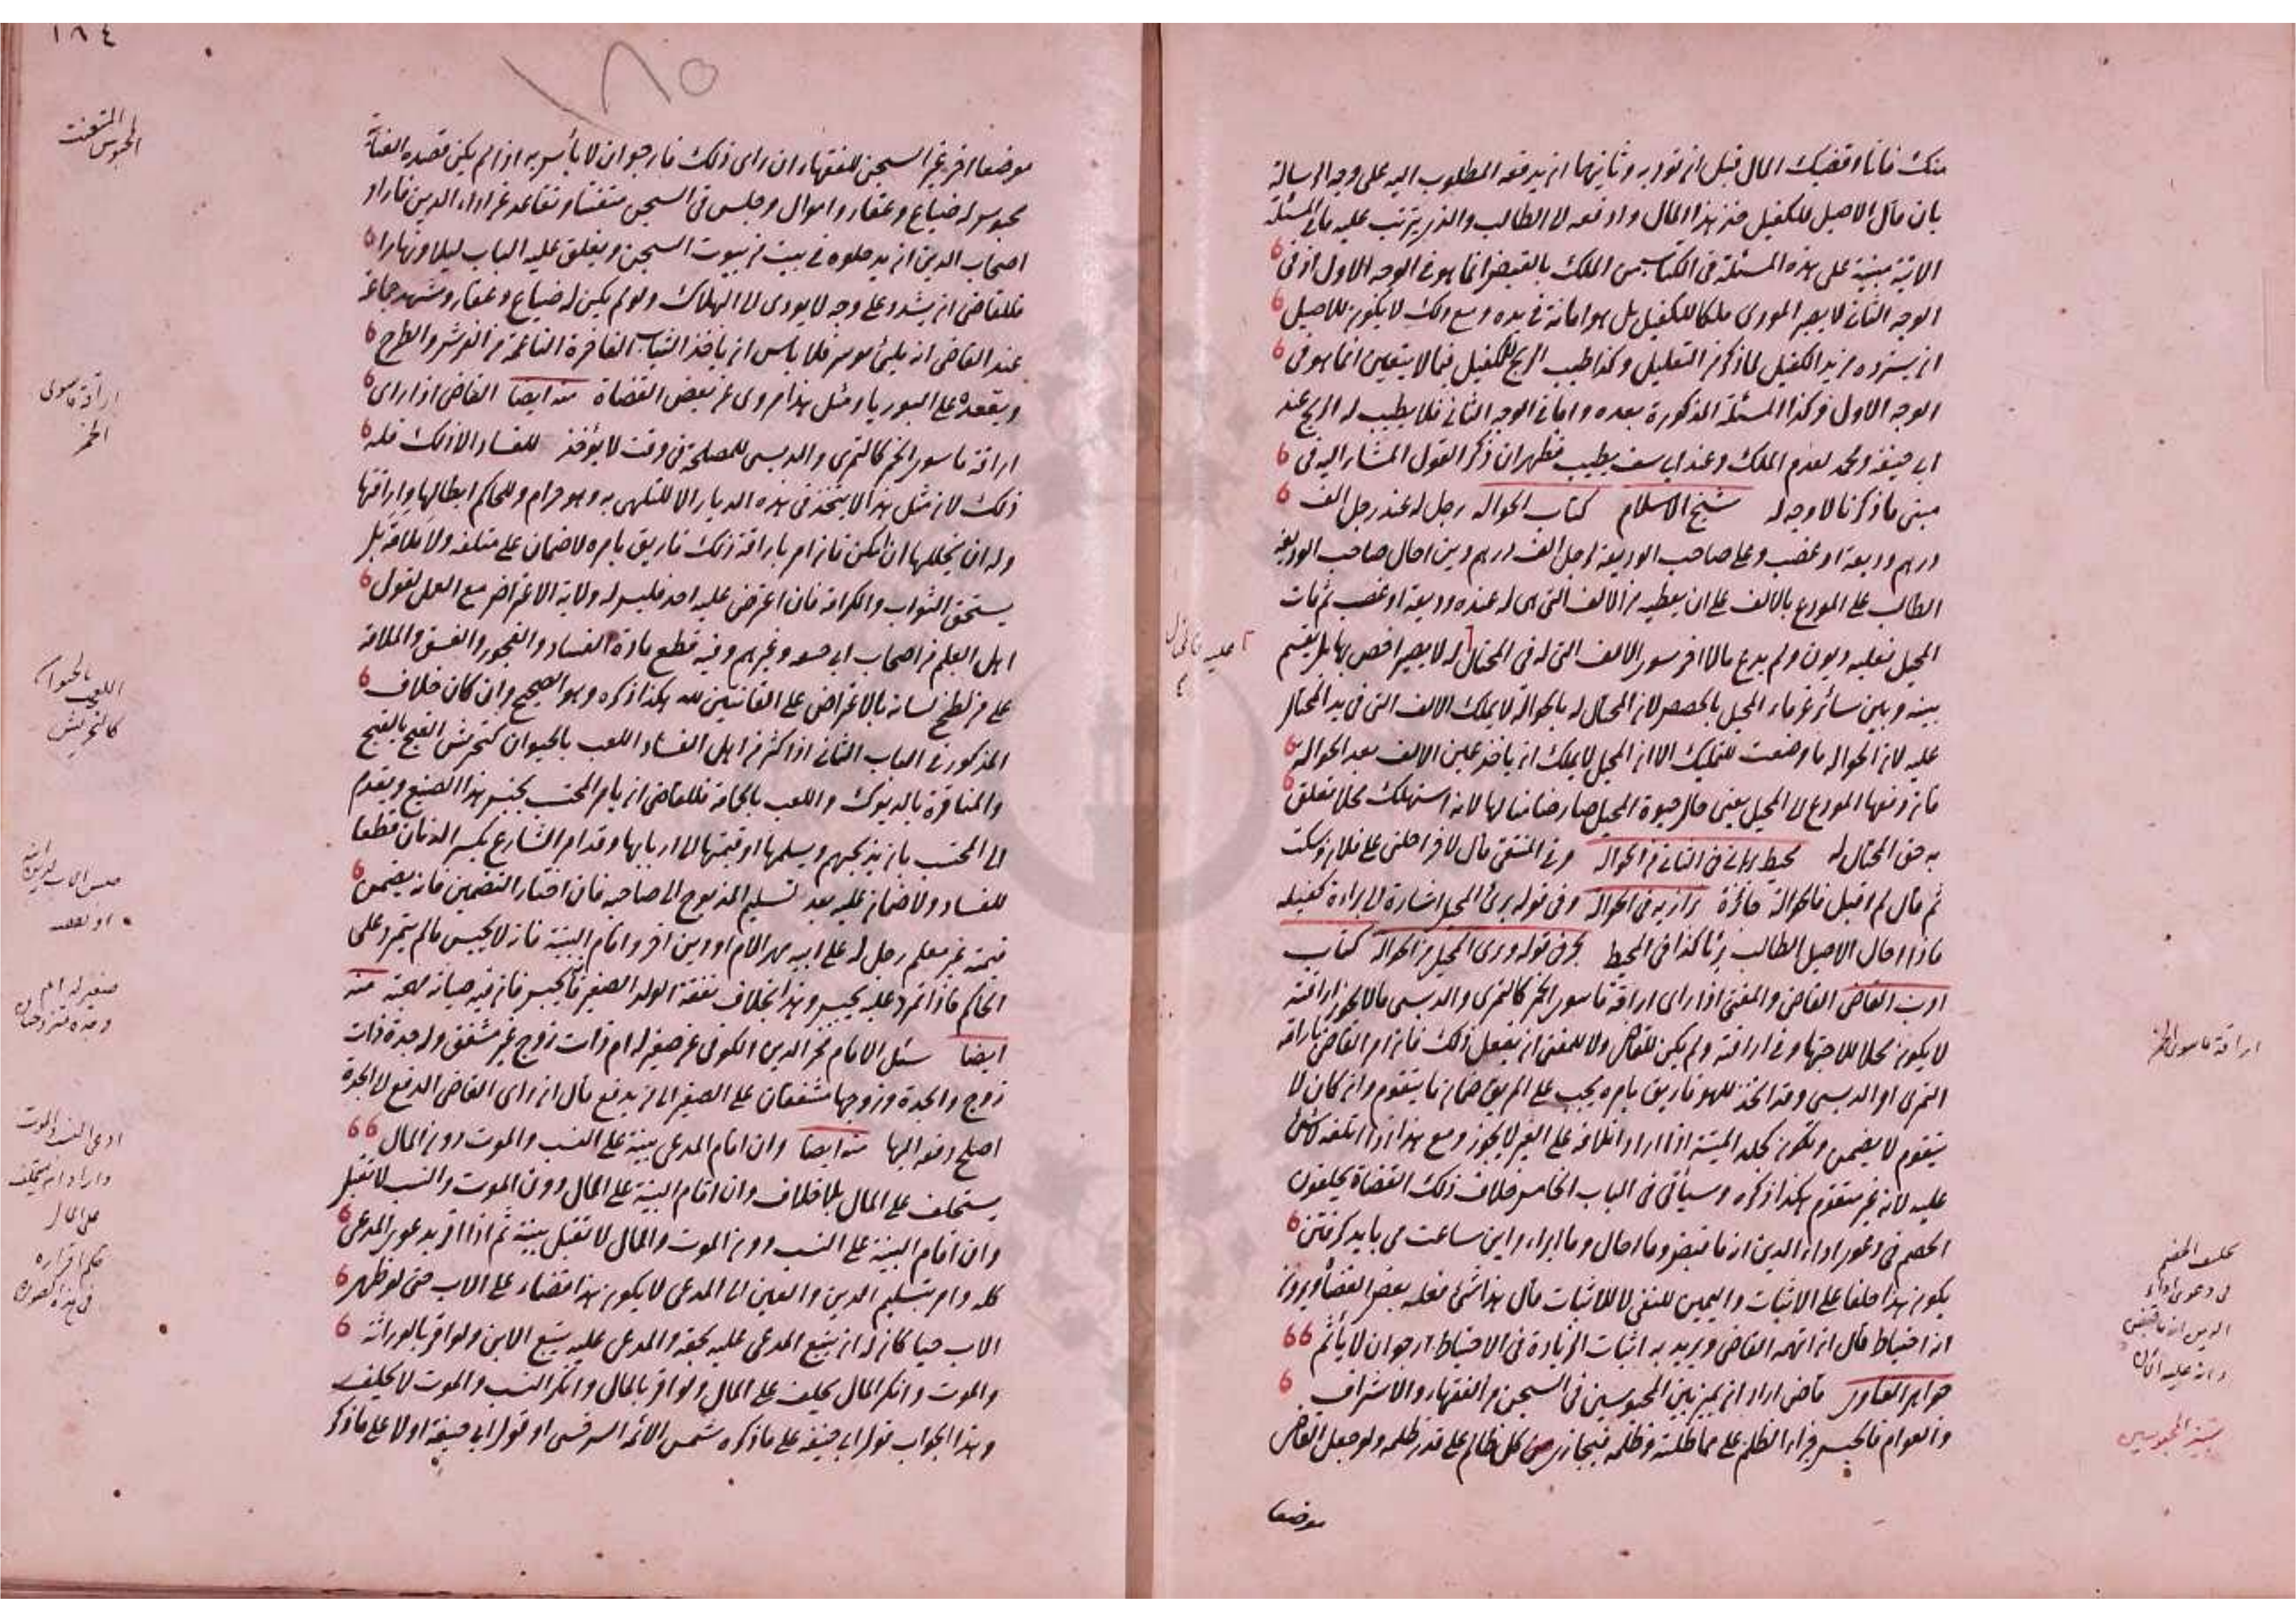 منك فانا اقضيك المال قبل ان تؤديه وثانيهما ان يدفعه المطلوب اليه على وجه الرسالة
بان قال الاصيل للكفيل خذ هذا المال وادفعه الى الطالب والذي يترتب عليه ما في المسئلة
الاتية مبنية على هذه المسئلة في الكتاب من الملك بالقبض انما هو في الوجه الاول اذ في
الوجه الثاني لا يصير المودى ملكا للكفيل بل هو امانة في يده ومع ذلك لا يكون للاصيل
ان يسترده من يد الكفيل لما ذكر من التعليل وكذا طيب الربح للكفيل فيما لا يتعين انما هو في
الوجه الاول وكذا المسئلة المذكورة بعده واما في الوجه الثاني فلا يطيب له الربح عند
ابي حنيفة ومحمد لعدم الملك وعند ابي يوسف يطيب فظهر ان ذكر القول المشار اليه في
مبنى ما ذكرنا لا وجه له شيخ الاسلام كتاب الحوالة رجل له عند رجل الف
درهم وديعة او غصب وعلى صاحب الوديعة لرجل الف درهم دين احال صاحب الوديعة
الطالب على المودع بالالف على ان يعطيه من الالف التي هي له عنده وديعة او غصب ثم مات
المحيل فعليه ديون ولم يدع مالا اخر سوى الالف التي له في المحتال له لا يصير اخص بها بل يقسم
بينه وبين سائر غرماء المحيل بالحصص لان المحتال له بالحوالة لا يملك الالف التي في يد المحتال
عليه لان الحوالة ما وضعت للتمليك الا ان المحيل لا يملك ان ياخذ عين الالف بعد الحوالة
فان دفعها المودع الى المحيل يعني حال حيوة المحيل صار ضامنا لها لانه استهلك محلا تعلق
به حق المحتال له محيط برهاني في الثاني من الحوالة وفي المنتقى قال لاخر احلني على فلان وسكت
ثم قال لم اقبل فالحوالة جائزة بزازيه في الحوالة وفي قوله برئ المحيل اشارة الى براءة كفيله
فاذا احال الاصيل الطالب برئا كذا في المحيط بحر في قوله وبرئ المحيل من الحوالة كتاب
ادب القاضي القاضي والمفتي اذا راى اراقة ما سوى الخمر كالتمري والدبسي مما لا يجوز اراقته
لا يكون محلا للاجتهاد في اراقته ولم يكن للقاضي ولا للمفتي ان يفعل ذلك فان امر القاضي باراقة
التمري او الدبسي وقد اتخذ للهو فاريق بامره يجب على المريق ضمان ما يتقوم وان كان لا
يتقوم لا يضمن ويكون كجلد الميتة اذا اراد اتلافه على الغير لا يجوز ومع هذا اذا اتلفه لا شئ
عليه لانه غير متقوم هكذا ذكره وسيأتي في الباب الخامس خلاف ذلك القضاة يحلفون
الخصم في دعوى اداء الدين انه ما قبض وما احال وما ابراء واين ساعت مى بايد كرفتن
يكون هذا حلفا على الاثبات واليمين للنفي لا للاثبات قال هذا شئ فعله بعض القضاة ويرون
انه احتياط قال ان اتهمه القاضي ويريد به اثبات الزيادة في الاحتياط ارجو ان لا يأثم
جواهر الفتاوى قاضي اراد ان يميز بين المحبوسين في السجن من الفقهاء والاشراف
والعوام فالحبس جزاء الظلم على مماطلته وظلمه فيجازى من كل ظالم على قدر ظلمه ولو جعل القاضي
موضعا
عليه قال
اراقة ما سوى الخمر
تحليف الخصم
في دعوى اداء
الدين انه ما قبض
تمييز المحبوسين
١٨٤
١٨٥
موضعا اخر غير السجن للفقهاء ان راى ذلك فارجو ان لا بأس به اذا لم يكن قصده الغناء
محبوس له ضياع وعقار واموال وجلس في السجن متعنتا وتقاعد عن اداء الدين فاراد
اصحاب الدين ان يدخلوه في بيت من بيوت السجن ويغلق عليه الباب ليلا ونهارا
فللقاضي ان يشدد على وجه لا يودى الى الهلاك ولو لم يكن له ضياع وعقار وشهد جماعة
عند القاضي انه ملئ موسر فلا باس ان ياخذ الثياب الفاخرة الناعمة من الفرش والطرح
ويقعده على البوريا ومثل هذا مروى عن بعض القضاة منه ايضا القاضي اذا راى
اراقة ما سوى الخمر كالتمري والدبسي للمصلحة في وقت لا يؤخذ للفساد الا ذلك فله
ذلك لان مثل هذا لا يتخذ في هذه الديار الا للتلهي به وهو حرام وللحاكم ابطالها واراقتها
وله ان يخللها ان امكن فان امر باراقة ذلك فاريق بامره لا ضمان على متلفه ولا ملامة بل
يستحق الثواب والكرامة فان اعترض عليه احد فليس له ولاية الاعتراض مع العمل بقول
اهل العلم من اصحاب ابي حنيفة وغيرهم وفيه قطع مادة الفساد والفجور والفسق والملامة
على من لطخ لسانه بالاعتراض على القانتين لله هكذا ذكره وهو الصحيح وان كان خلاف
المذكور في الباب الثاني اذا كثر من اهل الفساد اللعب بالحيوان كتحريش القبج بالقبج
والمناقرة بالديوك واللعب بالحمامة فللقاضي ان يامر المحتسب بحبس هذا الصنع ويقدم
الى المحتسب بان يذبحهم ويسلمها او قيمتها الى اربابها وقد امر الشارع بكسر الدنان قطعا
للفساد ولا ضمان عليه بعد تسليم المذبوح الى صاحبه فان اختار التضمين فانه يضمن
قيمته غير معلم رجل له على ابيه مهر الام او دين اخر واقام البينة فانه لا يحبس ما لم يتمرد على
الحاكم فاذا تمرد عليه يحبس وهذا بخلاف نفقة الولد الصغير فانه يحبس فان فيه صيانة لمهجته منه
ايضا سئل الامام فخر الدين الكوفي عن صغير له ام ذات زوج غير مشفق وله جدة ذات
زوج والجدة وزوجها مشفقان على الصغير الى من يدفع قال ان راى القاضي الدفع الى الجدة
اصلح دفعه اليها منه ايضا وان اقام المدعى بينة على النسب والموت دون المال
يستحلف على المال بلا خلاف وان اقام البينة على المال دون الموت والنسب لا تقبل
وان اقام البينة على النسب دون الموت والمال لا تقبل بينته ثم اذا اقر بدعوى المدعى
كله وامر بتسليم الدين والعين الى المدعى لا يكون هذا قضاء على الاب حتى لو ظهر
الاب حيا كان له ان يتبع المدعى عليه بحقه والمدعى عليه يتبع الابن ولو اقر بالوراثة
والموت وانكر المال يحلف على المال ولو اقر بالمال وانكر النسب والموت لا يحلف
وهذا الجواب قول ابي حنيفة على ما ذكره شمس الائمة السرخسي او قول ابي حنيفة اولا على ما ذكر
المحبوس المتعنت
اراقة ما سوى
الخمر
اللعب بالحيوان
كالتحريش
حبس الاب لدين
صغير له ام
ادعى النسب والموت
واراد ان يستحلف
على المال
حكم اقراره
في هذه الصورة